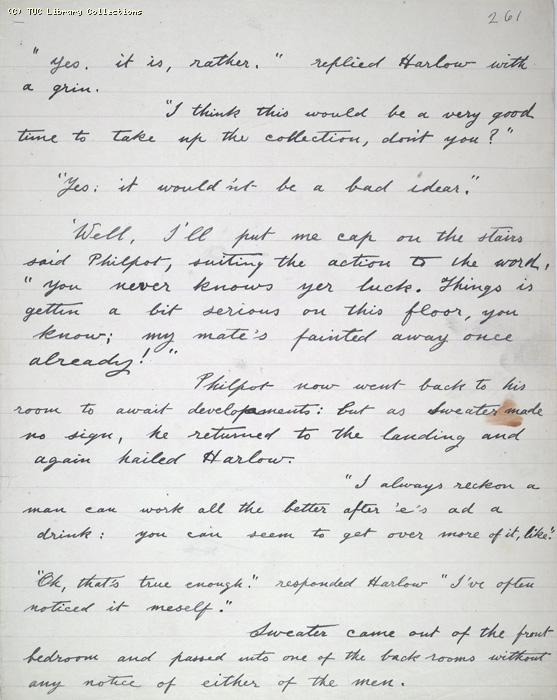 (C) TUC Library Collections
261
"Yes. it is, rather." replied Harlow with
a grin.
"I think this would be a very good
time to take up the collection, don't you?"
"Yes: it would'nt be a bad idear."
'Well, I'll put me cap on the stairs
said Philpot, suiting the action to the word,
"you never knows yer luck. Things is
gettin a bit serious on this floor, you
know; my mate's fainted away once
already!"
Philpot now went back to his
room to await developments: but as Sweater made
no sign, he returned to the landing and
again hailed Harlow.
"I always reckon a
man can work all the better after 'e's ad a
drink: you can seem to get over more of it, like."
"Oh, that's true enough." responded Harlow "I've often
noticed it meself."
Sweater came out of the front
bedroom and passed into one of the back rooms without
any notice of either of the men.